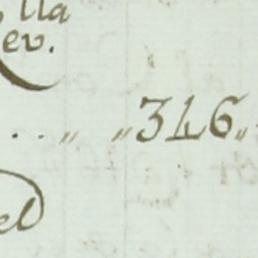 lla
ev.
. . „ „346„
el